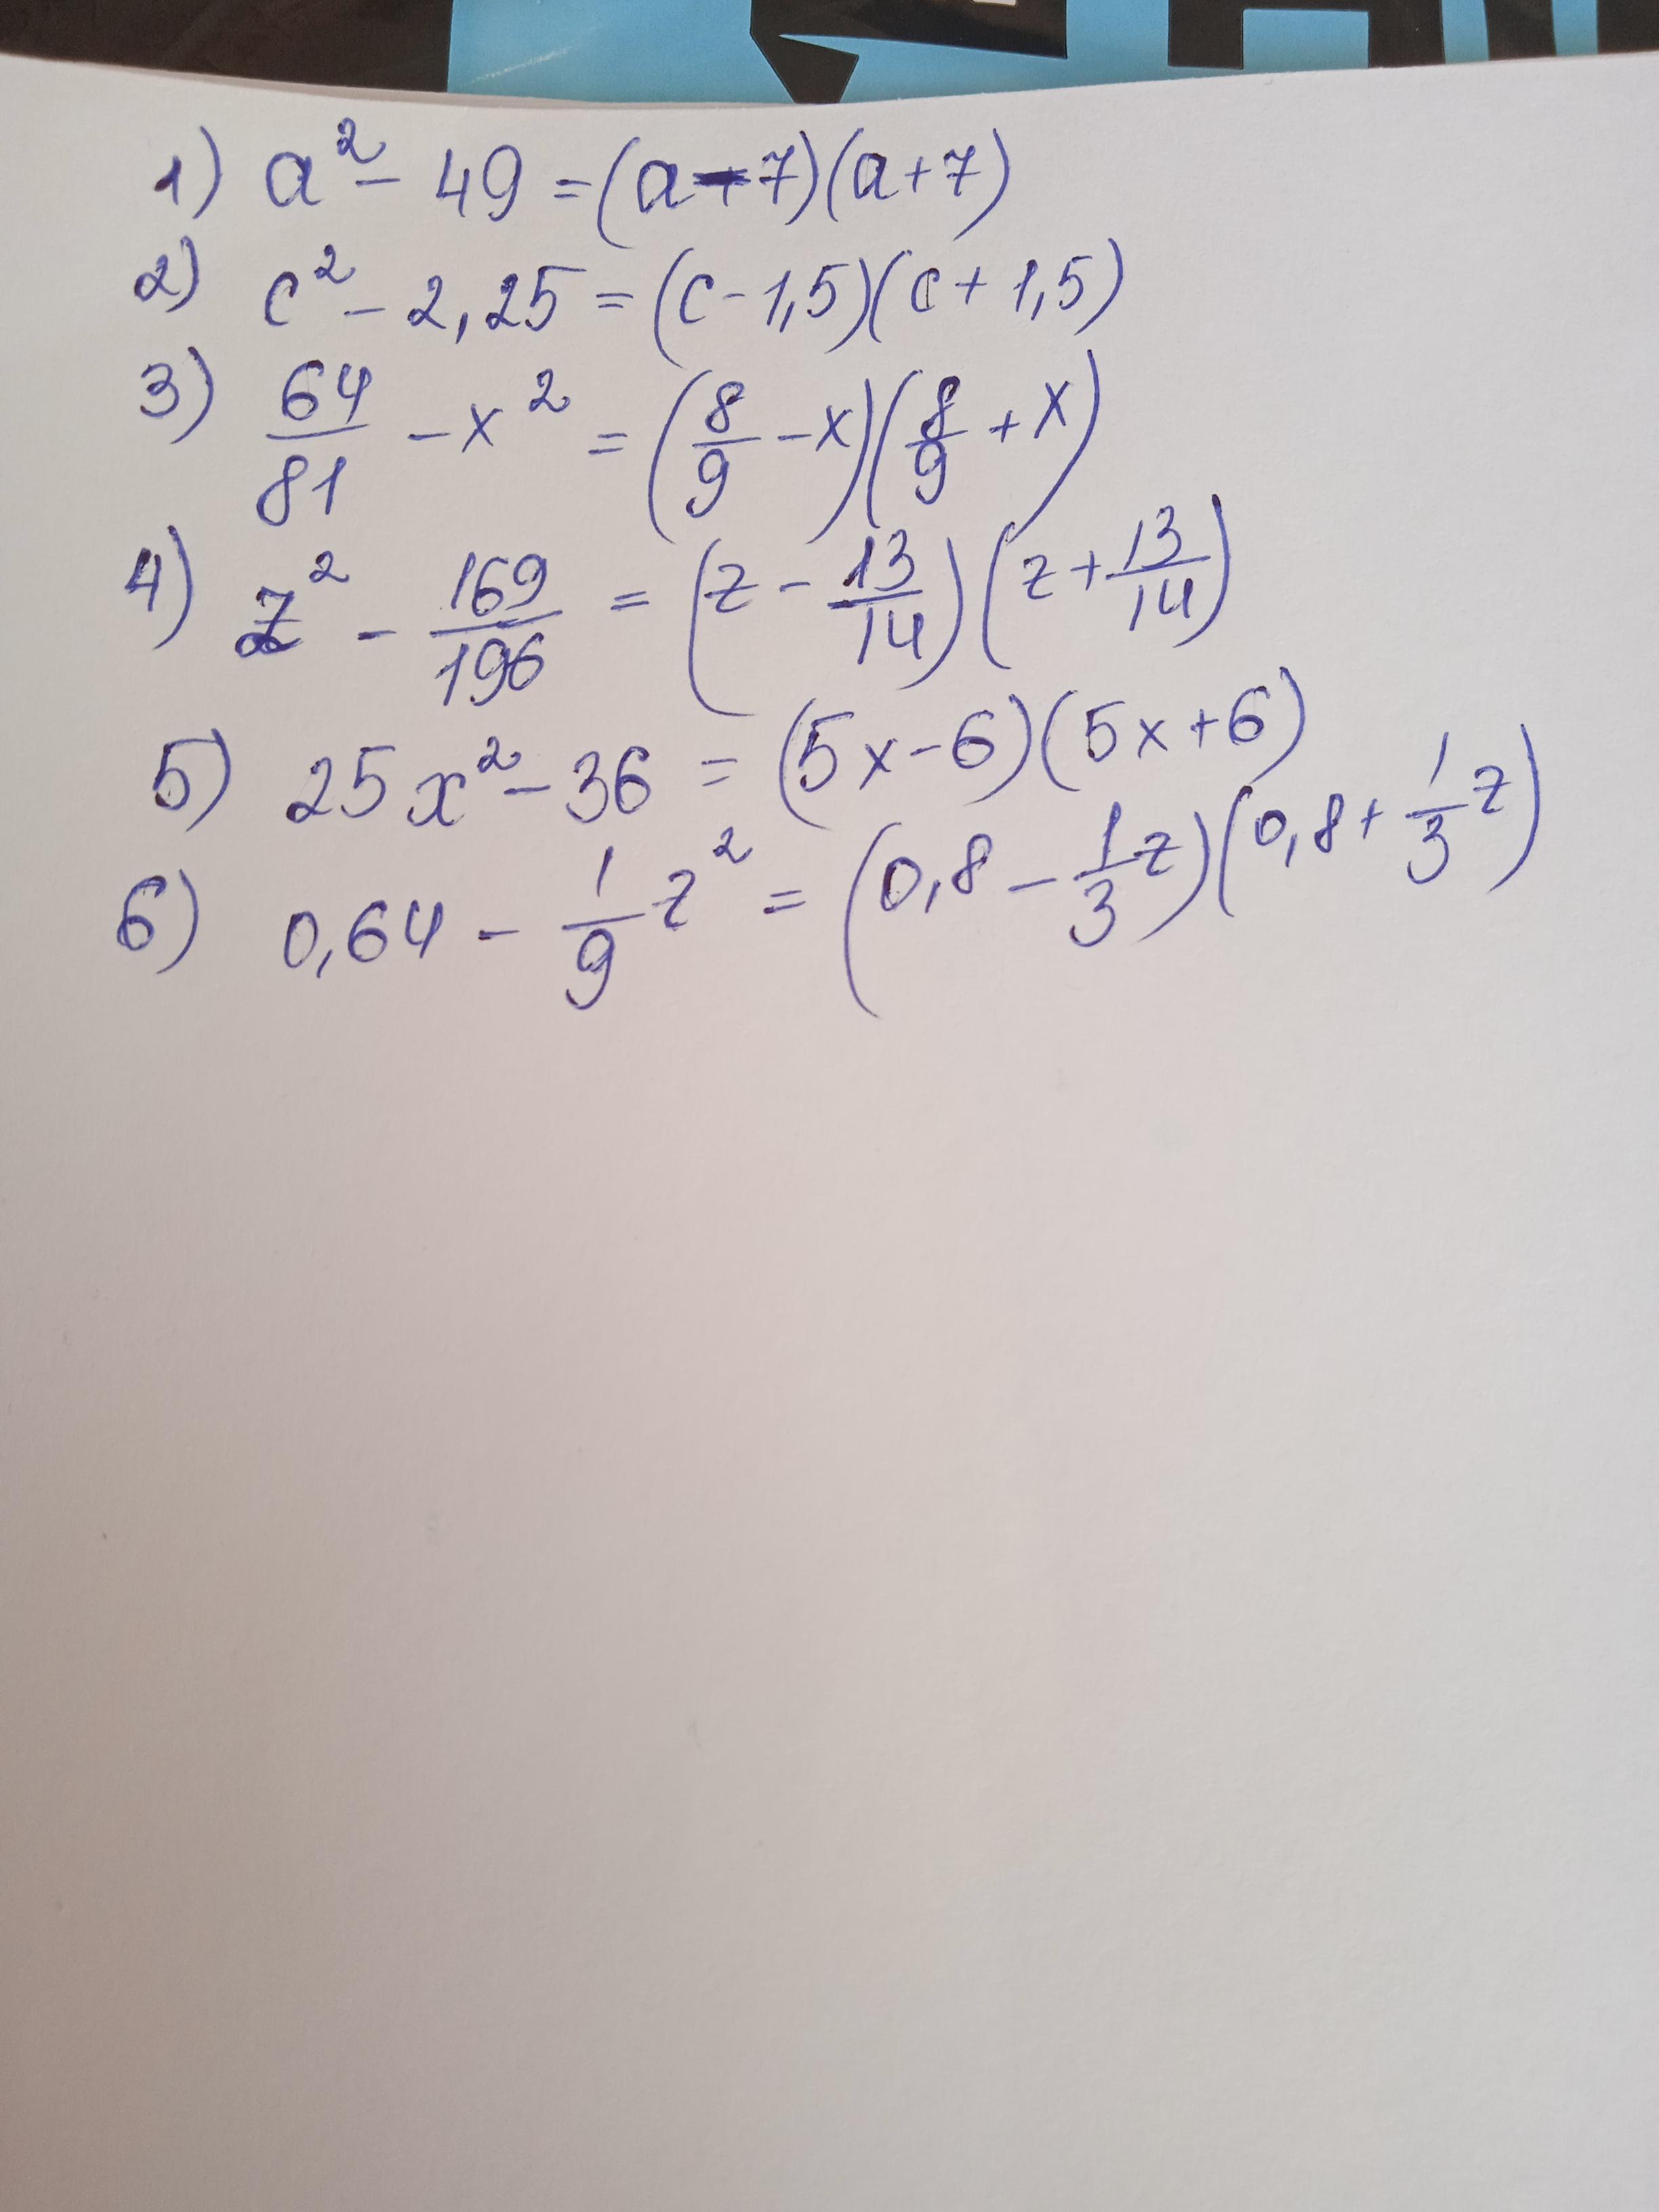 1) a² - 49 = (a-7)(a+7)
2) c² - 2,25 = (c-1,5)(c+1,5)
3) 64/81 - x² = (8/9 - x)(8/9 + x)
4) z² - 169/196 = (z - 13/14)(z + 13/14)
5) 25x² - 36 = (5x-6)(5x+6)
6) 0,64 - 1/9 z² = (0,8 - 1/3 z)(0,8 + 1/3 z)